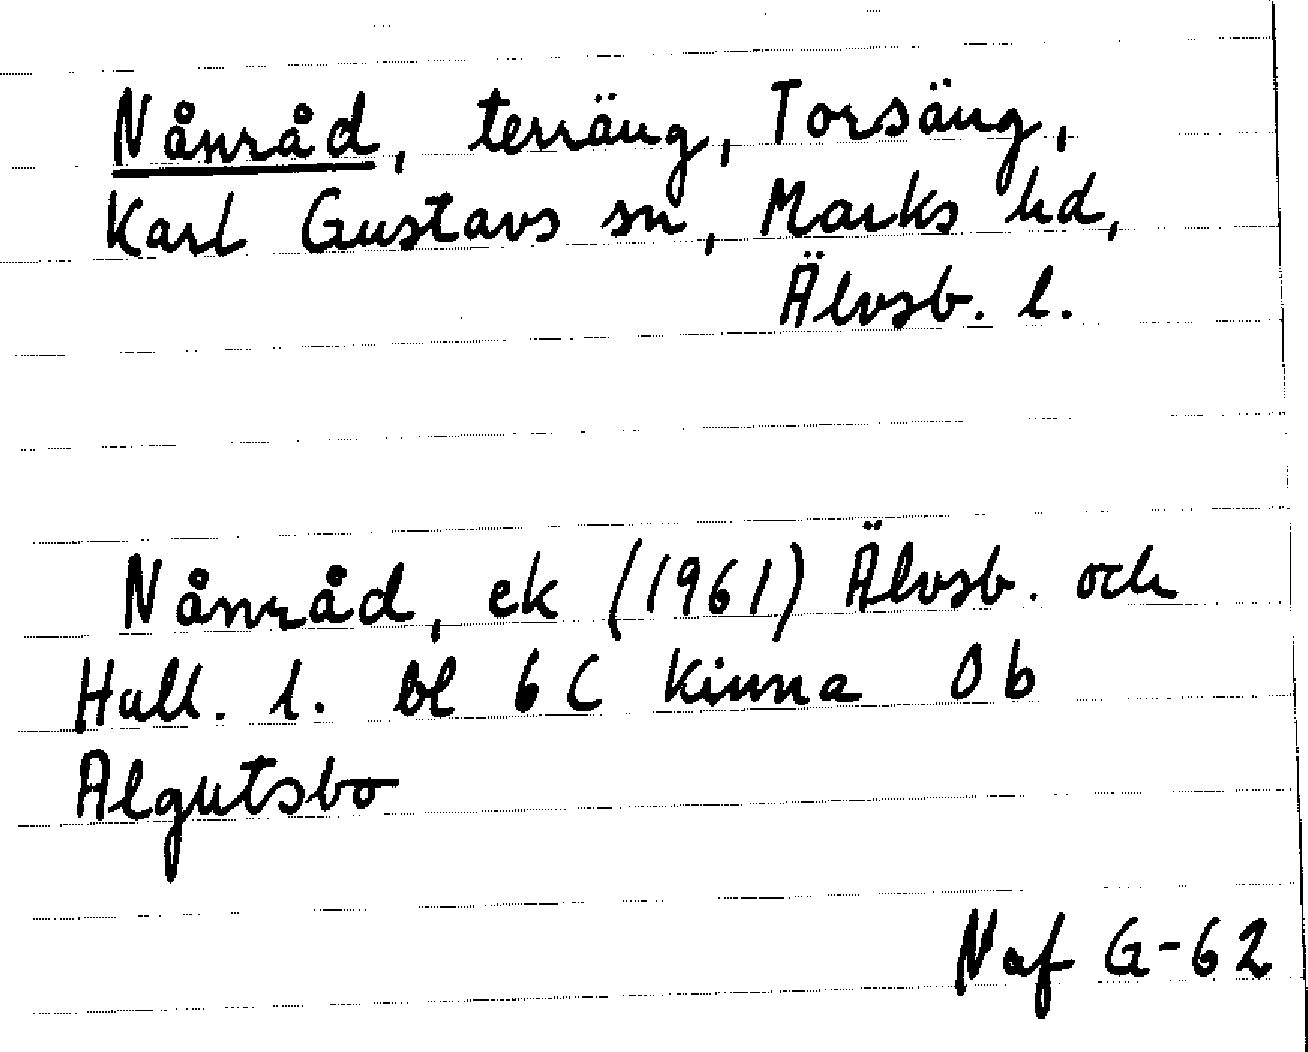 Nånråd, terräng, Torsäng,
Karl Gustavs sn, Marks hd,
Älvsb. l.
Nånråd, ek (1961) Älvsb. och
Hall. l. bl 6 C Kinna 0 b
Algutsbo
Naf G-62